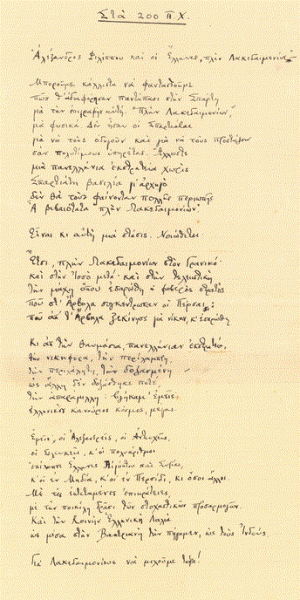 Στὰ 200 π.Χ.
«Ἀλέξανδρος Φιλίππου καὶ οἱ Ἕλληνες πλὴν Λακεδαιμονίων—»
Μποροῦμε κάλλιστα νὰ φαντασθοῦμε
πὼς θ' ἀδιαφόρησαν παντάπασι στὴν Σπάρτη
γιὰ τὴν ἐπιγραφὴν αὐτή. «Πλὴν Λακεδαιμονίων»,
μὰ φυσικά. Δὲν ἦσαν οἱ Σπαρτιᾶται
γιὰ νὰ τοὺς ὁδηγοῦν καὶ γιὰ νὰ τοὺς προστάζουν
σὰν πολυτίμους ὑπηρέτας. Ἄλλωστε
μιὰ πανελλήνια ἐκστρατεία χωρὶς
Σπαρτιάτη βασιλέα γι' ἀρχηγὸ
δὲν θὰ τοὺς φαίνονταν πολλῆς περιωπῆς.
Ἆ βεβαιότατα «πλὴν Λακεδαιμονίων».
Εἶναι κι αὐτὴ μιὰ στάσις. Νοιώθεται.
Ἔτσι, πλὴν Λακεδαιμονίων στὸν Γρανικό·
καὶ στὴν Ἰσσὸ μετά· καὶ στὴν τελειωτικὴ
τὴν μάχη, ὅπου ἐσαρώθη ὁ φοβερὸς στρατὸς
ποὺ στ' Ἄρβηλα συγκέντρωσαν οἱ Πέρσαι:
ποὺ ἀπ' τ' Ἄρβηλα ξεκίνησε γιὰ νίκην, κ' ἐσαρώθη.
Κι ἀπ' τὴν θαυμάσια πανελλήνιαν ἐκστρατεία,
τὴν νικηφόρα, τὴν περίλαμπρη,
τὴν περιλάλητη, τὴν δοξασμένη
ὡς ἄλλη δὲν δοξάσθηκε καμιά,
τὴν ἀπαράμιλλη: βγήκαμ' ἐμεῖς·
ἑλληνικὸς καινούριος κόσμος, μέγας.
Ἐμεῖς· οἱ Ἀλεξανδρεῖς, οἱ Ἀντιοχεῖς,
οἱ Σελευκεῖς, κ' οἱ πολυάριθμοι
ἐπίλοιποι Ἕλληνες Αἰγύπτου καὶ Συρίας,
κ' οἱ ἐν Μηδίᾳ, κ' οἱ ἐν Περσίδι, κι ὅσοι ἄλλοι.
Μὲ τὲς ἐκτεταμένες ἐπικράτειες,
μὲ τὴν ποικίλη δρᾶσι τῶν στοχαστικῶν προσαρμογῶν.
Καὶ τὴν Κοινὴν Ἑλληνικὴ Λαλιὰ
ὣς μέσα στὴν Βακτριανὴ τὴν πήγαμεν, ὣς τοὺς Ἰνδούς.
Γιὰ Λακεδαιμονίους νὰ μιλοῦμε τώρα!